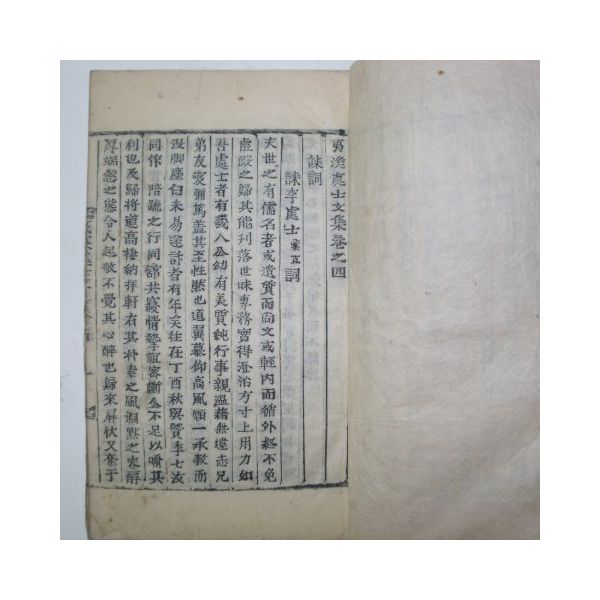 夷溪處士文集卷之四
誄詞
誄李處士詞
夫世之有儒名者或遺質而尙文或輕内而循外終不免
虛殿之歸其能刊落世味專務實得澄治方寸上用力如
吾處士者有幾人公幼有美質純行事親溫藉無違志兄
弟友愛彌篤盖其至性然也道翼慕仰高風願一承敎而
沒脚塵臼未易遂計者有年矣徃在丁酉秋與賢季七汝
同作陪疏之行同舘共寢情摯誼密斷金不足以喩其
利也及歸將道高棲納拜軒右其朴素之風淵默之容醇
厚端懿之態令人起敬不覺其心醉也歸來屛伏又奄于